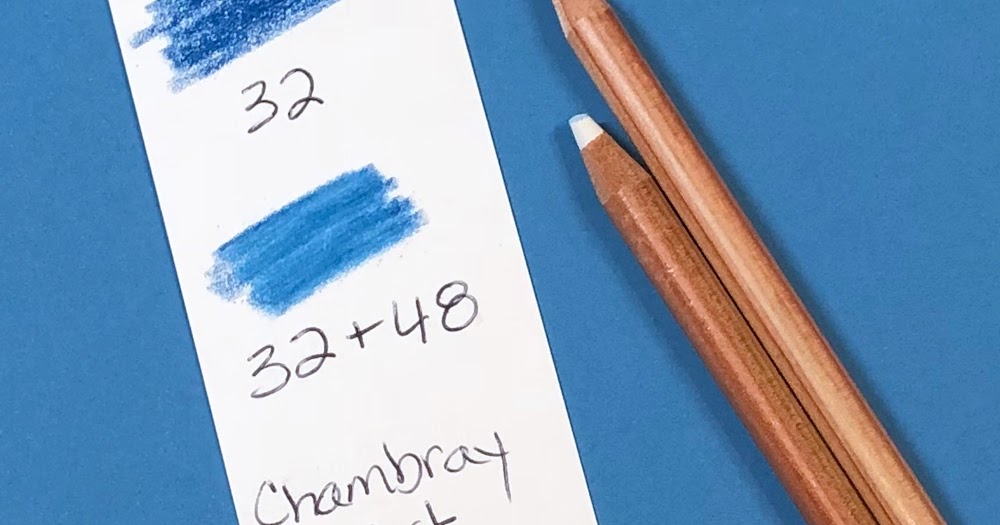 32
32+48
Chambray